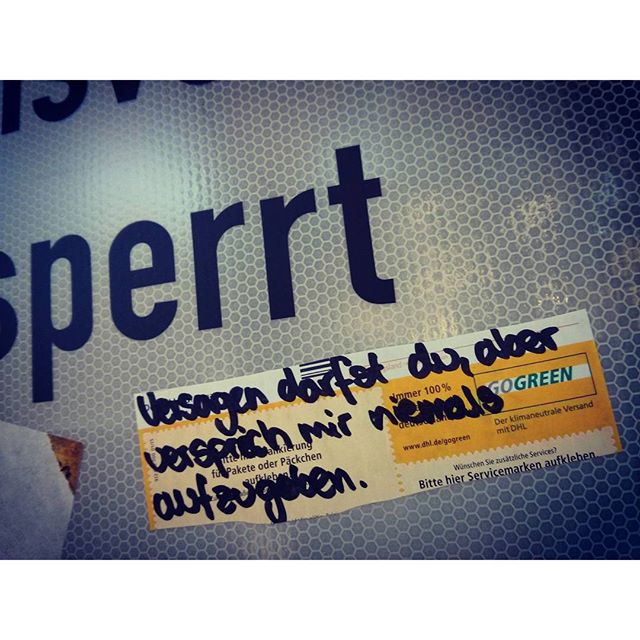 sperrt
Versagen darfst du, aber
versprich mir niemals
aufzugeben.
immer 100%
GOGREEN
www.dhl.de/gogreen
Der klimaneutrale Versand
mit DHL
für Pakete oder Päckchen
aufkleben
Wünschen Sie zusätzliche Services?
Bitte hier Servicemarken aufkleben